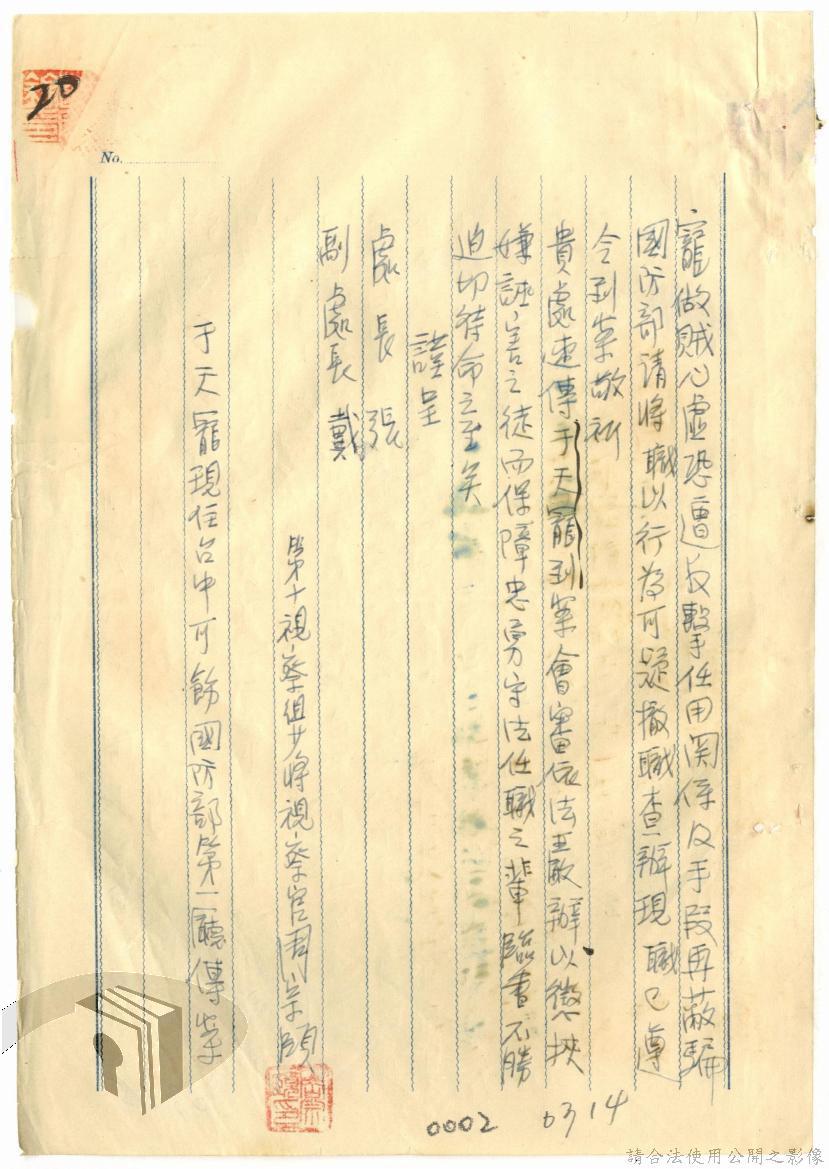 20
No.
寵做賊心虛恐遭反擊任用関係及手段再蔽騙
國防部请将職以行為可疑撤職查辦現職已遵
令到案敬祈
貴處速傳于天寵到案會審依法嚴辦以懲挾
嫌誣害之徒而保障忠勇守法任職之輩臨書不勝
迫切待命之至矣
謹呈
處長 張
副處長 戴
第十視察組少將視察官周
于天寵現住台中可飭國防部第一廳傳案
0002
0314
請合法使用公開之影像